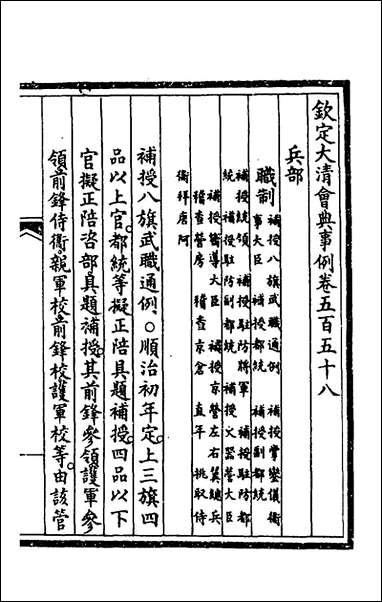 欽定大清會典事例卷五百五十八
兵部
職制
補授八旗武職通例 補授掌鑾儀衛
事大臣 補授都統 補授副都統
補授統領 補授駐防將軍 補授駐防都
統 補授駐防副都統 補授火器營大臣
補授嚮導大臣 補授京營左右翼總兵
稽查營房 稽查京倉 直年 挑取侍
衛拜唐阿
補授八旗武職通例○順治初年定。上三旗四
品以上官。都統等擬正陪具題補授。四品以下
官擬正陪咨部。具題補授。其前鋒參領。護軍參
領。前鋒侍衛。親軍校。前鋒校。護軍校等。由該管